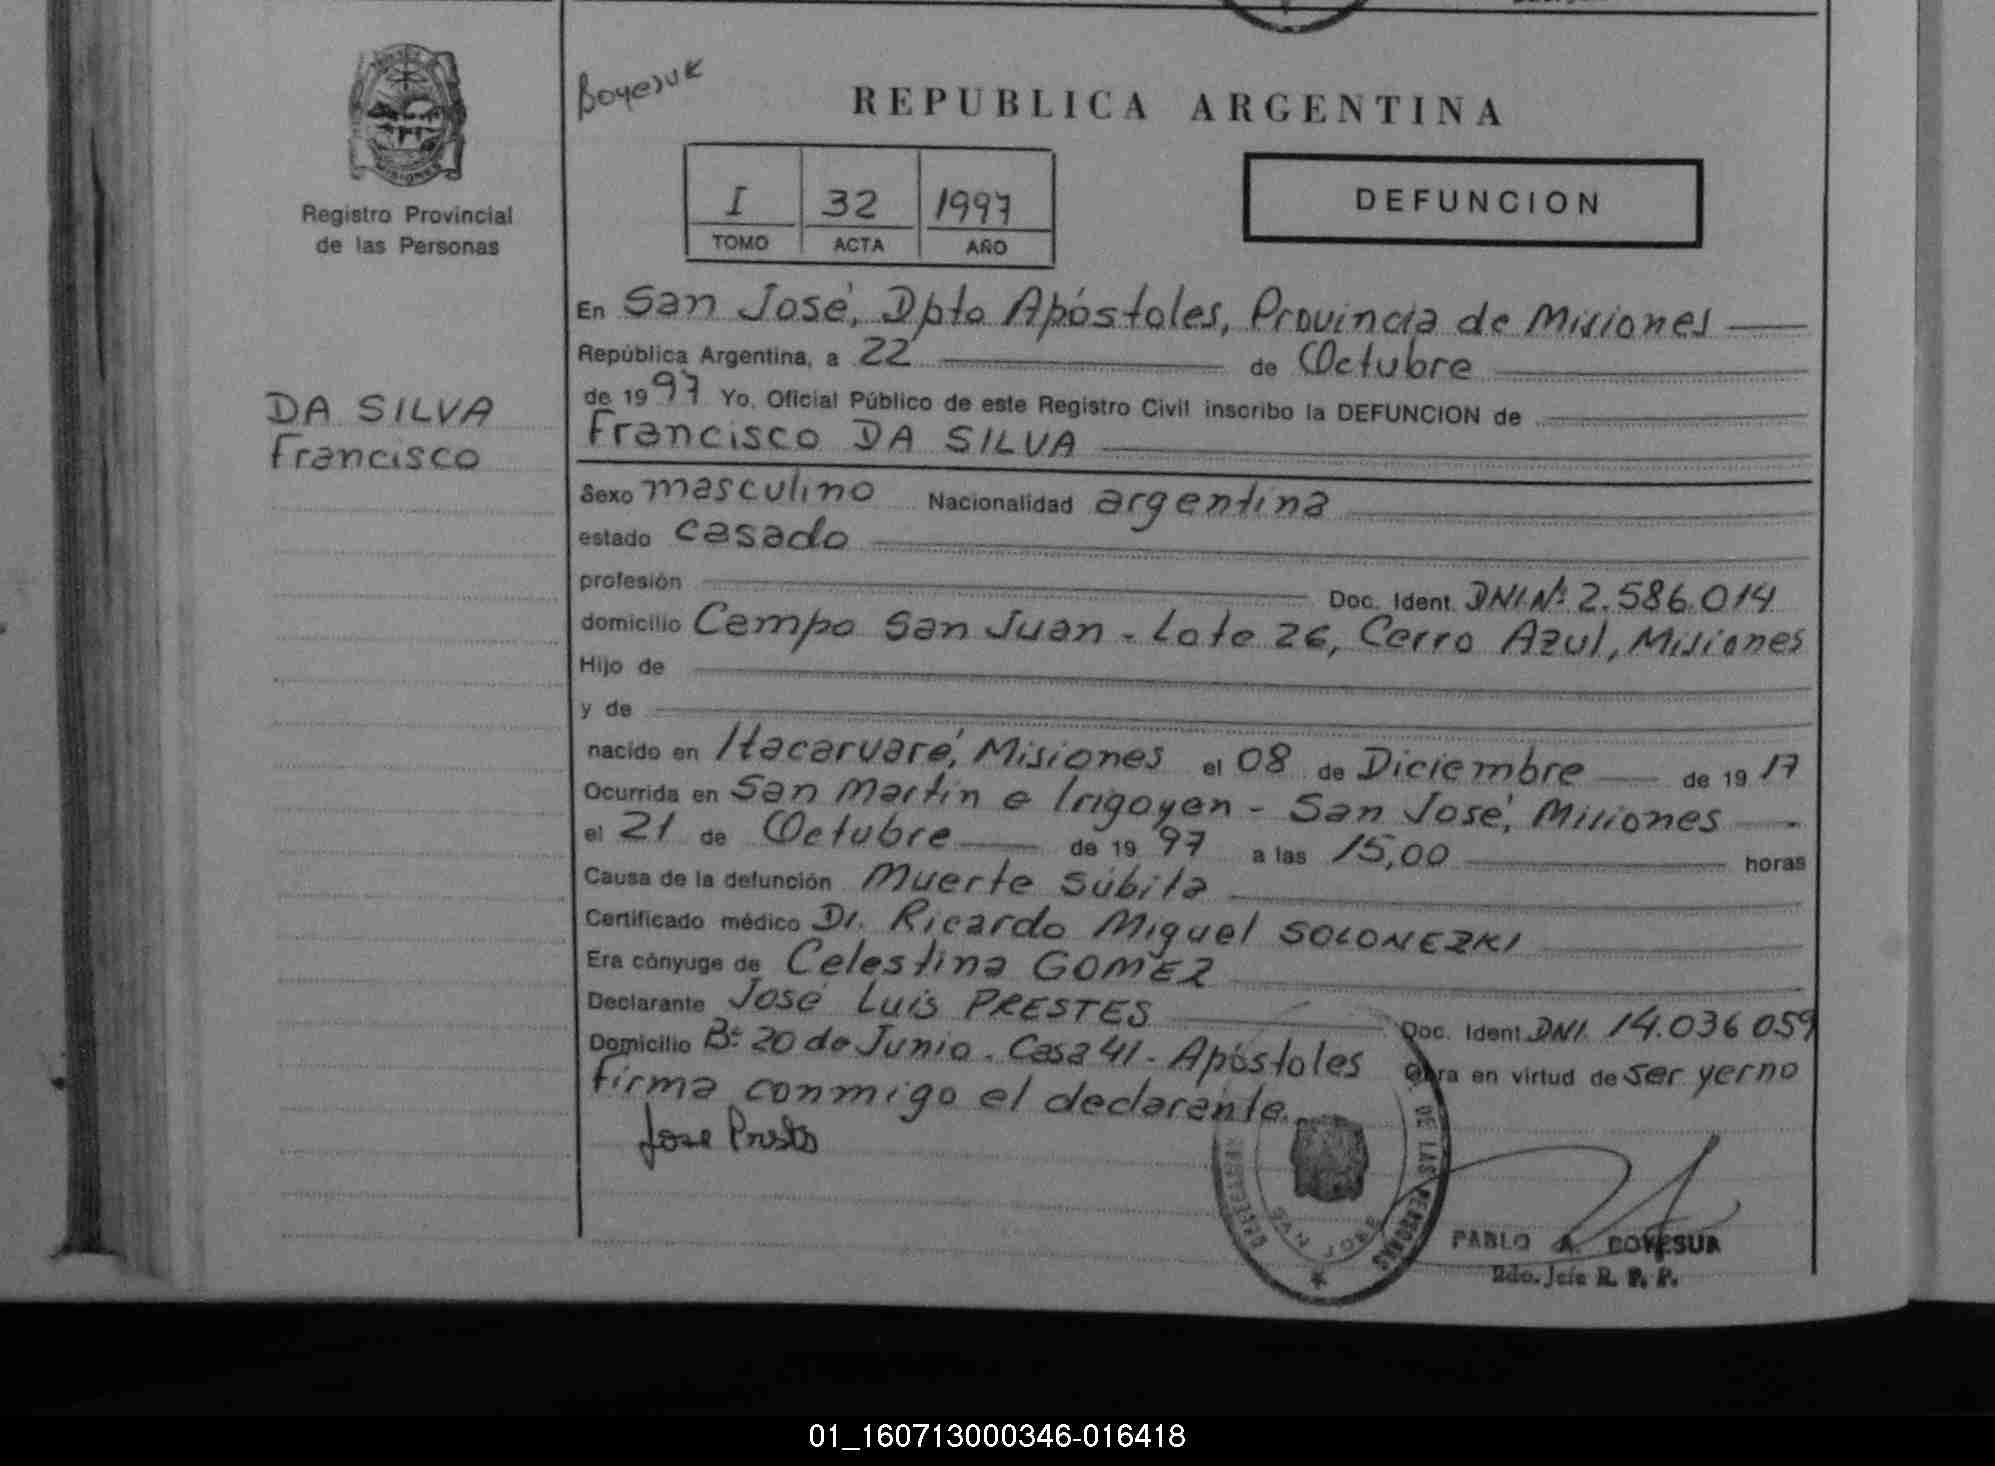 Boyesuk
REPUBLICA ARGENTINA
MISIONES
Registro Provincial
de las Personas
I 32 1997
TOMO ACTA AÑO
DEFUNCION
DA SILVA
Francisco
En San José, Dpto Apóstoles, Provincia de Misiones
República Argentina, a 22 de Octubre
de 1997 Yo, Oficial Público de este Registro Civil inscribo la DEFUNCION de
Francisco DA SILVA
Sexo masculino Nacionalidad argentina
estado casado
profesión Doc. Ident. DNI Nº 2.586.014
domicilio Campo San Juan - Lote 26, Cerro Azul, Misiones
Hijo de
y de
nacido en Itacaruaré, Misiones el 08 de Diciembre de 1917
Ocurrida en San Martín e Irigoyen - San José, Misiones
el 21 de Octubre de 1997 a las 15,00 horas
Causa de la defunción Muerte Súbita
Certificado médico Dr. Ricardo Miguel SOLONEZKI
Era cónyuge de Celestina GOMEZ
Declarante José Luis PRESTES Doc. Ident. DNI. 14.036.059
Domicilio Bº 20 de Junio - Casa 41 - Apóstoles Obra en virtud de ser yerno
Firma conmigo el declarante.
Jose Prestes
DE LAS PERSONAS
SAN JOSE
PABLO A. BOYESUK
Jefe R. P. P.
01_160713000346-016418